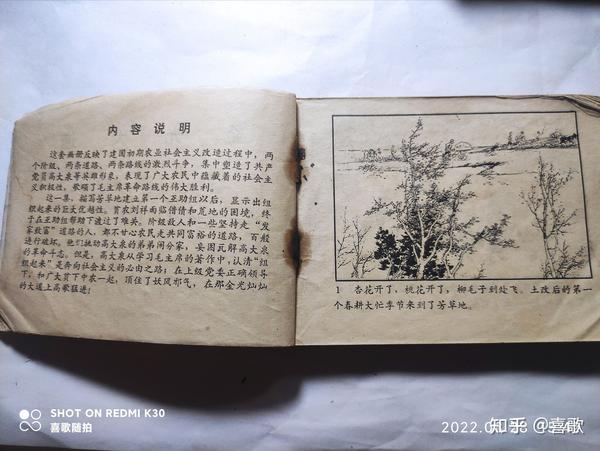 内容说明
这套画册反映了建国初期农业社会主义改造过程中，两
个阶级、两条道路、两条路线的激烈斗争，集中塑造了共产
党员高大泉等英雄形象，表现了广大农民中蕴藏着的社会主
义积极性，歌颂了毛主席革命路线的伟大胜利。
这一集，描写芳草地建立第一个互助组以后，显示出组
织起来的巨大优越性。贫农刘祥面临借债和荒地的困境，终
于在互助组帮助下渡过了难关。阶级敌人和一些坚持走“发
家致富”道路的人，都不甘心农民走共同富裕的道路，百般
进行破坏。他们挑动高大泉的弟弟闹分家，妄图瓦解高大泉
的革命斗志。但是，高大泉从学习毛主席的著作中，认清“组
织起来”是奔向社会主义的必由之路；在上级党委正确领导
下，和广大贫下中农一起，顶住了妖风邪气，在那金光灿灿
的大道上高歌猛进！
1 杏花开了，桃花开了，柳毛子到处飞。土改后的第一
个春耕大忙季节来到了芳草地。
SHOT ON REDMI K30
喜歌随拍
2022.0
知乎 @喜歌